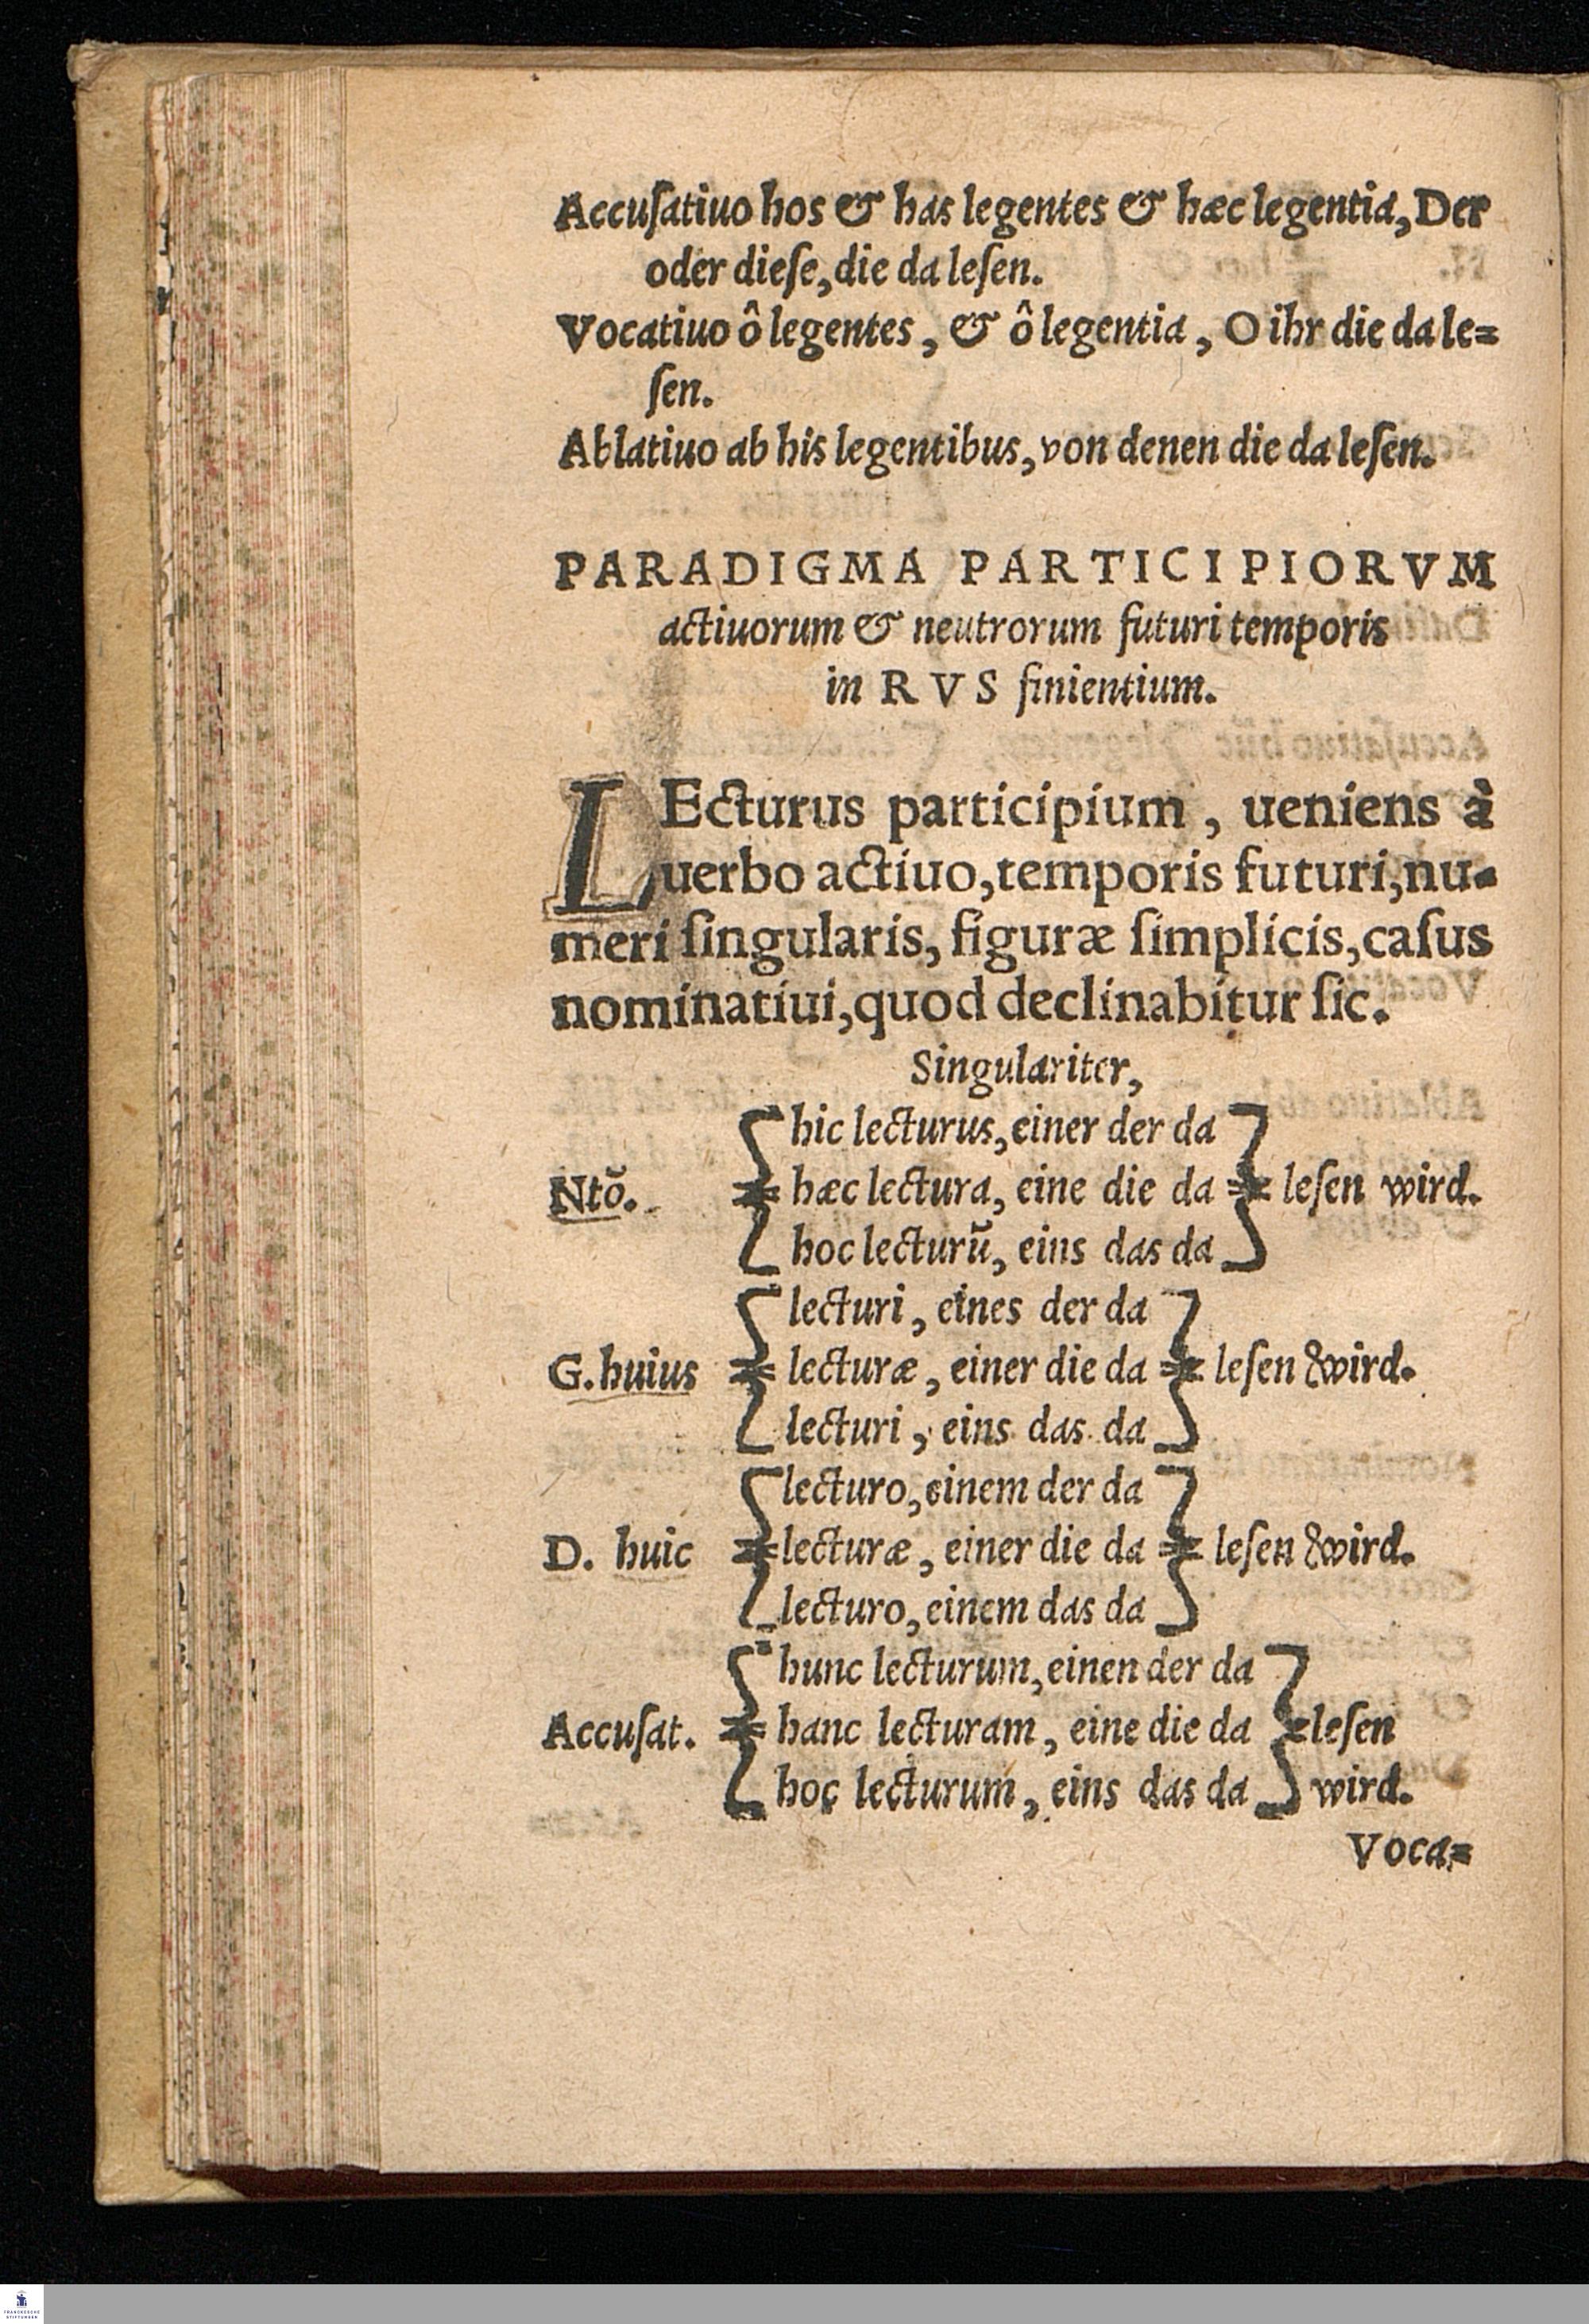 Accuſatiuo hos & has legentes & hæc legentia, Der
oder dieſe, die da leſen.
Vocatiuo ô legentes, & ô legentia, O ihr die da le=
ſen.
Ablatiuo ab his legentibus, von denen die da leſen.
PARADIGMA PARTICIPIORVM
actiuorum & neutrorum futuri temporis
in RVS finientium.
LEcturus participium, ueniens à
uerbo actiuo, temporis futuri, nu-
meri ſingularis, figuræ ſimplicis, caſus
nominatiui, quod declinabitur ſic.
Singulariter,
hic lecturus, einer der da
Ntŏ. hæc lectura, eine die da leſen wird.
hoc lecturũ, eins das da
lecturi, eines der da
G. huius lecturæ, einer die da leſen wird.
lecturi, eins das da
lecturo, einem der da
D. huic lecturæ, einer die da leſen wird.
lecturo, einem das da
hunc lecturum, einen der da
Accuſat. hanc lecturam, eine die da leſen
hoc lecturum, eins das da wird.
Voca=
FRANCKESCHE
STIFTUNGEN